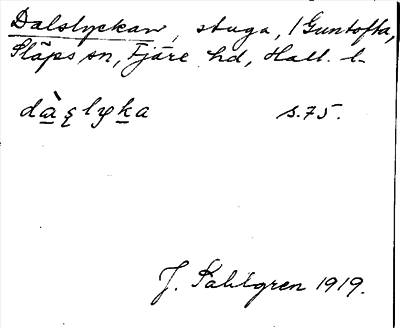 Dalslyckan, stuga, i Guntofta,
Släps sn, Fjäre hd, Hall. l.
dàʂlyka s.75.
J. Sahlgren 1919.